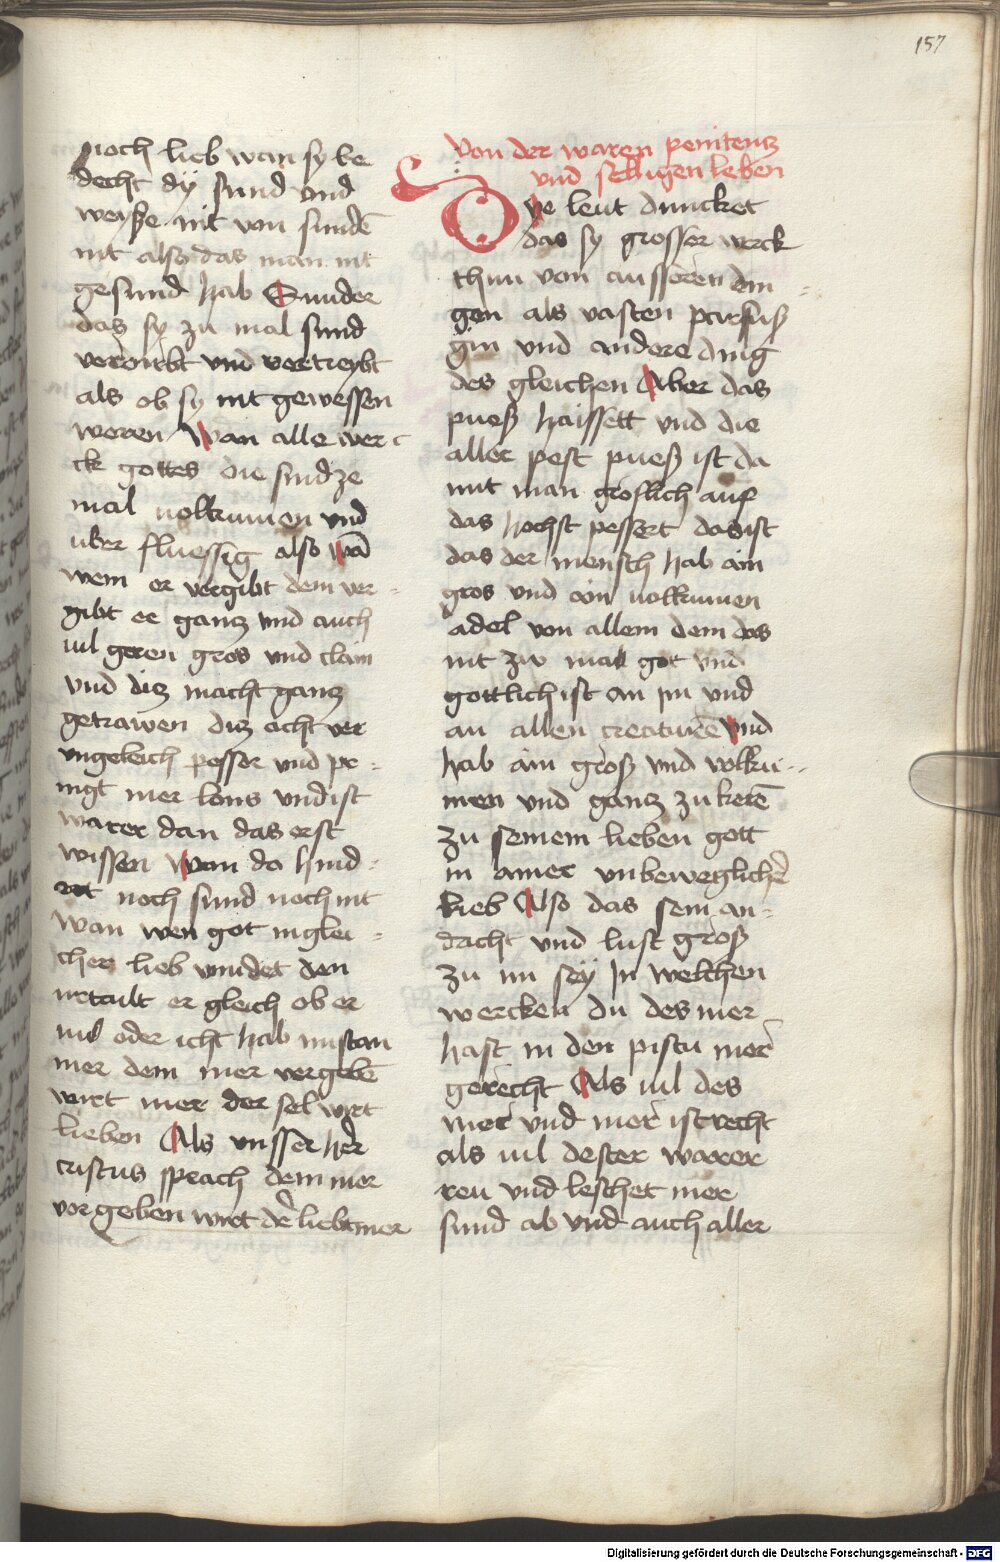 157
noch lieb wan sy be
decht dÿ sund vnd
weyße nit von sundē
nit also das man nit
gesund hab Sunder
das sy zu mal sund
verdirbt vnd vertreybt
als ob sy nit gewessen
weren Wan alle wer
ck gottes die sind ze
mal uolkumen vnd
uber fluessig also wā
wem er vergibt dem ver
gibt er gancz vnd auch
uil geren gros vnd clain
vnd dicz macht gancz
getrawen dicz acht ver
vngeleich pesser vnd pr
ingt mer lons vnd ist
warer dan das erst
wissen wan da hind
ret noch sund noch nit
wan wen got in glei
cher lieb vindet den
urtailt er gleich ob er
uil oder icht hab
mer dem mer vergebē
wirt mer der sel wirt
lieben Als vnsser her
cristus sprach dem mer
vorgeben wirt der liebt mer
Von der waren penitencz
vnd selligen leben
Die leut duncket
das sy grosser werck
thun von ausseren din
gen als vasten parfus
gin vnd andere ding
des gleichen Aber das
pueß haissett vnd die
aller pest pueß ist da
mit man groslich auf
das hochst pessert das ist
das der mensch hab ain
gros vnd ain uolkumen
adel von allem dem das
nit zw mal got vnd
gottlich ist an im vnd
an allen creaturē vnd
hab ain groß vnd volku
men vnd gancz zu kerē
zu seinem lieben gott
in ainer vnbeweglicher
lieb Also das sein an
dacht vnd lust groß
zu im sey In welchen
wercken du des mer
hast in den pistu mer
gerecht Als uil des
mer vnd mer ist recht
als uil dester warer
reu vnd leschet mer
sund ab vnd auch aller
Digitalisierung gefördert durch die Deutsche Forschungsgemeinschaft - DFG